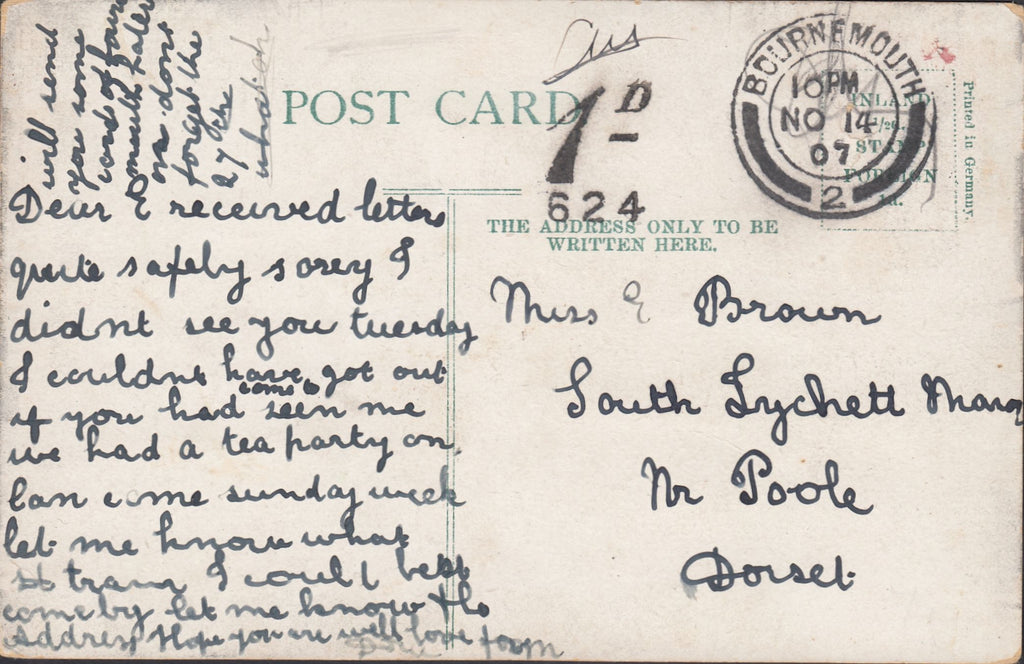 POST CARD
1D
624
BOURNEMOUTH
10 PM
NO 14
07
2
INLAND
½d.
STAMP
FOREIGN
1d.
Printed in Germany.
THE ADDRESS ONLY TO BE
WRITTEN HERE.
Miss E Brown
South Lychett Manor
Nr Poole
Dorset
Dear E received letters
quite safely sorey I
didnt see you tuesday
I couldnt have got out
if you had come to seen me
we had a tea party on
Can come sunday week
let me know what
train I could best
come by let me know the
Address Hope you are well love from
will send
you some
cards of
later
on dont
forget the
of the